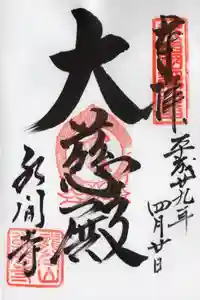 奉拝
平成廿九年
四月廿日
大慈殿
永間寺